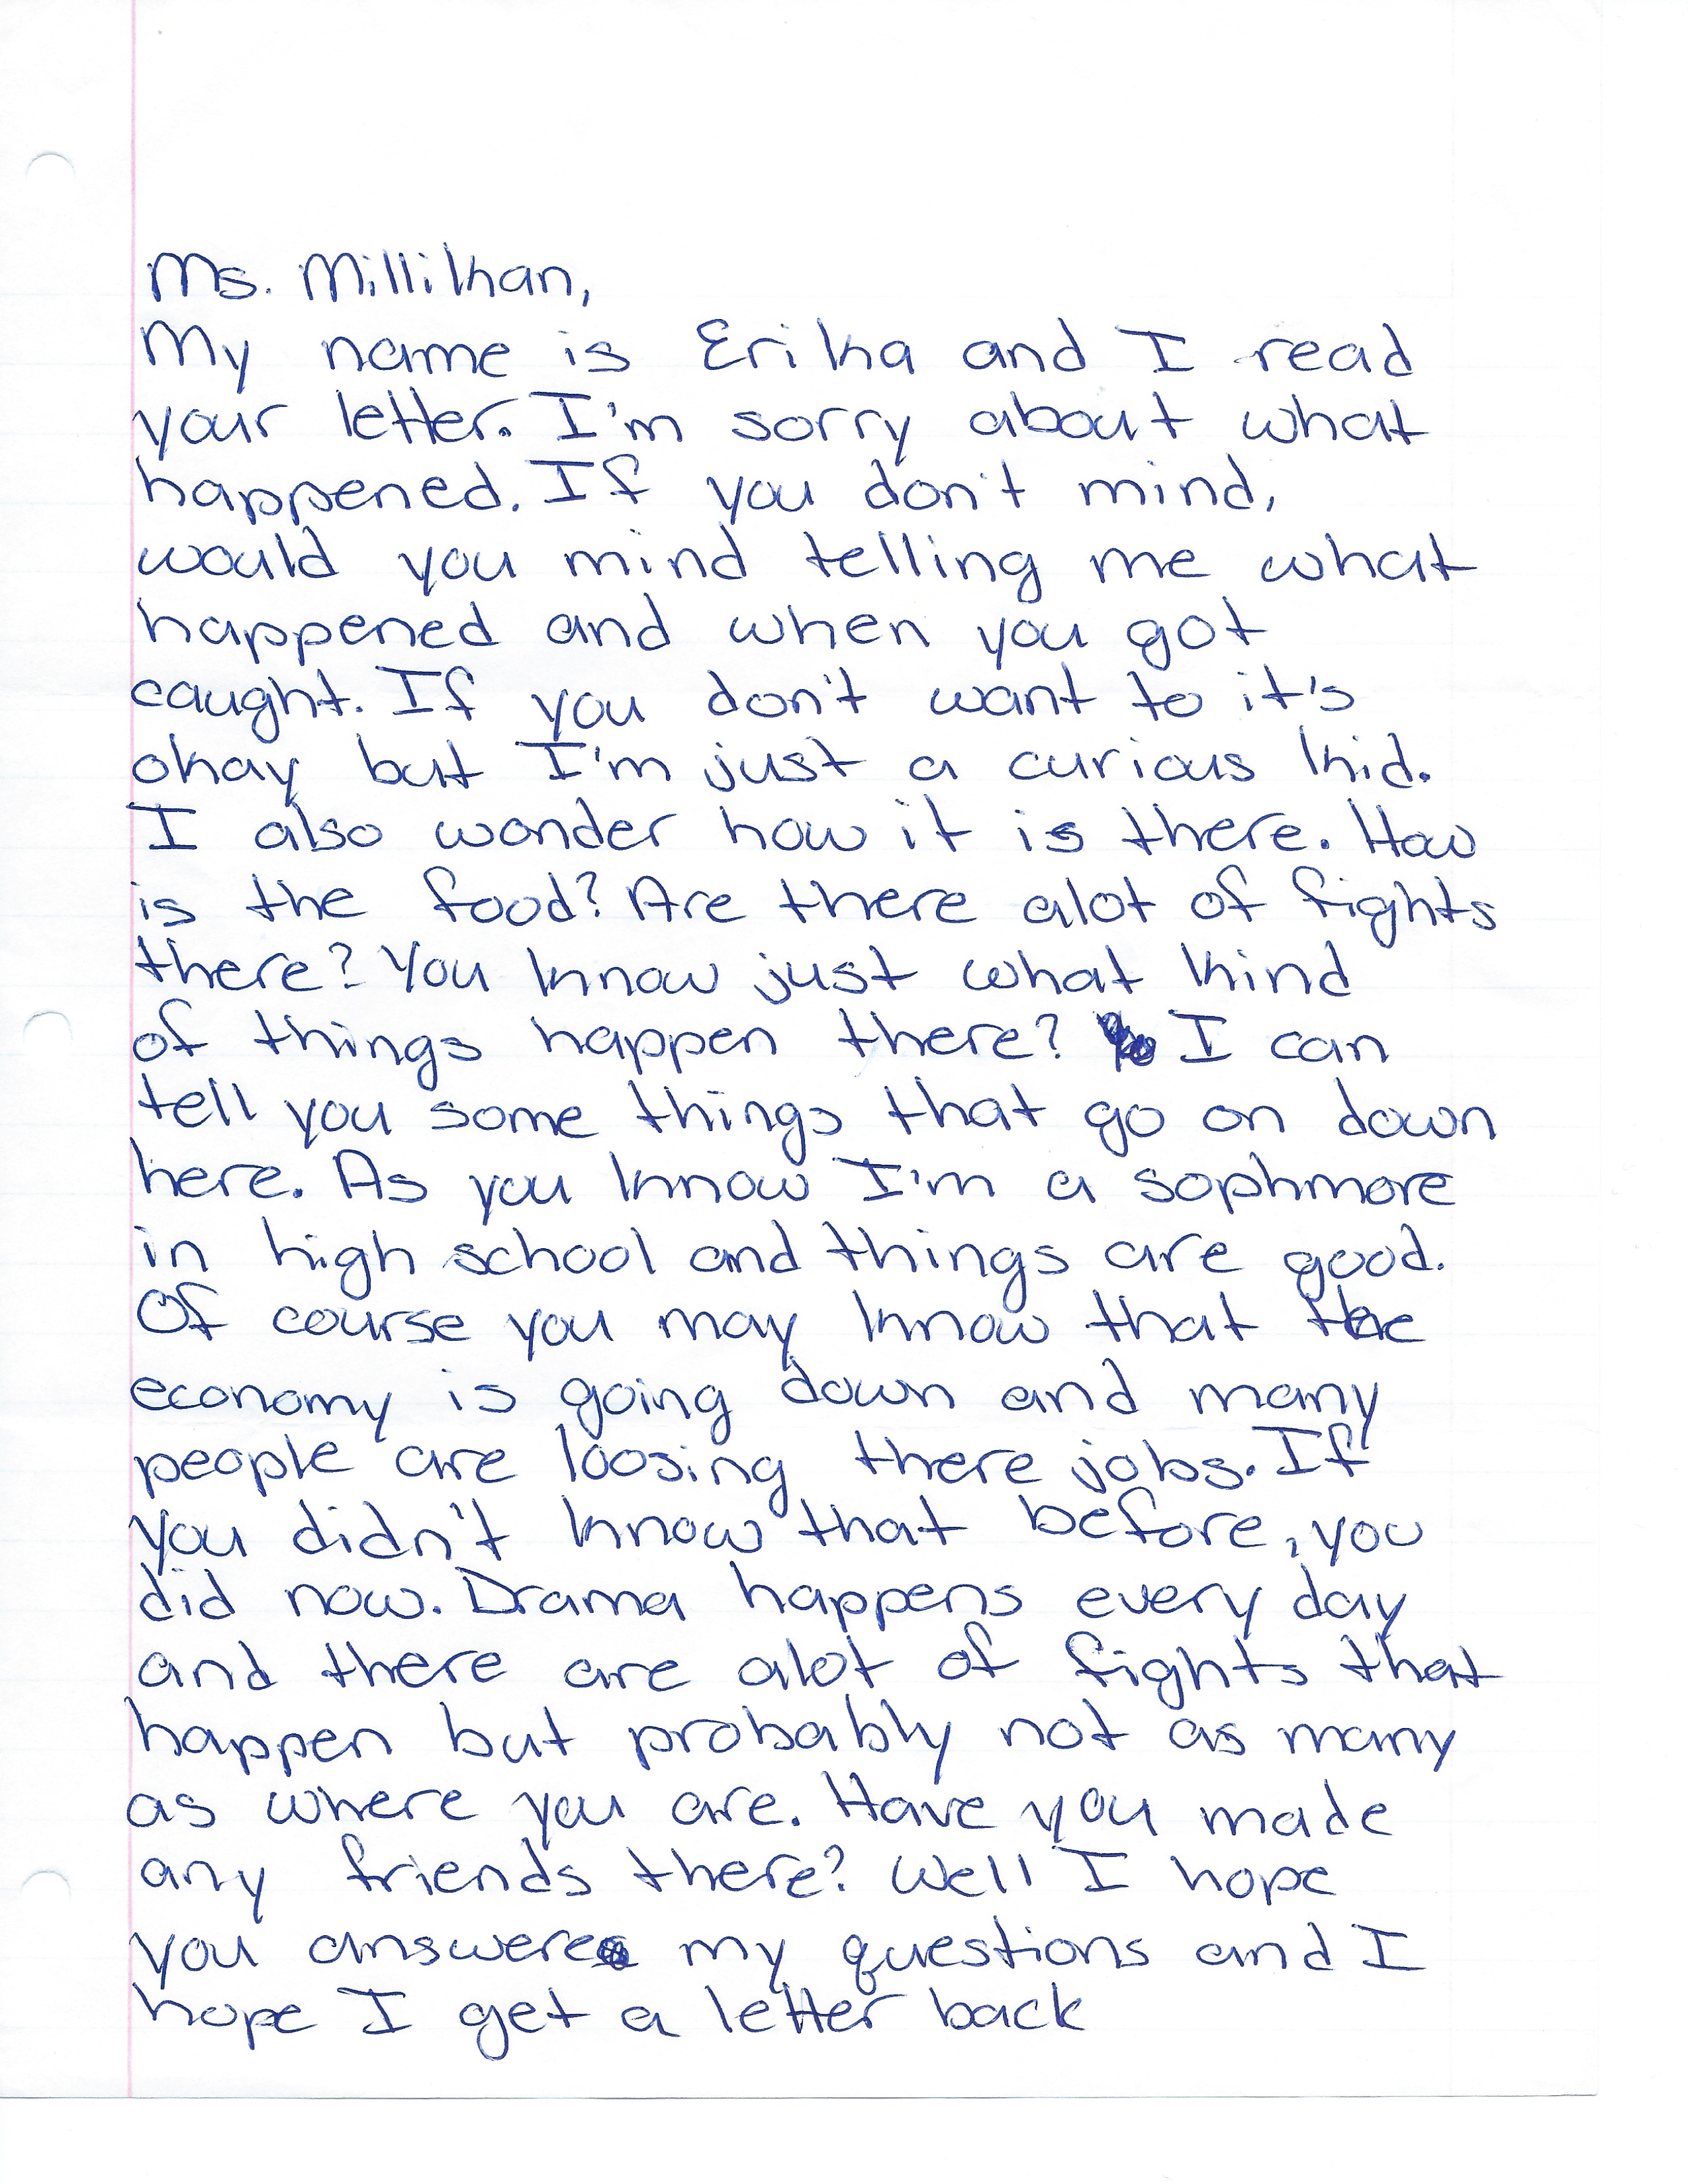 Ms. Millikan,
My name is Erika and I read
your letter. I'm sorry about what
happened. If you don't mind,
would you mind telling me what
happened and when you got
caught. If you don't want to it's
okay but I'm just a curious kid.
I also wonder how it is there. How
is the food? Are there alot of fights
there? You know just what kind
of things happen there? I can
tell you some things that go on down
here. As you know I'm a sophmore
in high school and things are good.
Of course you may know that the
economy is going down and many
people are loosing there jobs. If
you didn't know that before, you
did now. Drama happens every day
and there are alot of fights that
happen but probably not as many
as where you are. Have you made
any friends there? Well I hope
you answere my questions and I
hope I get a letter back